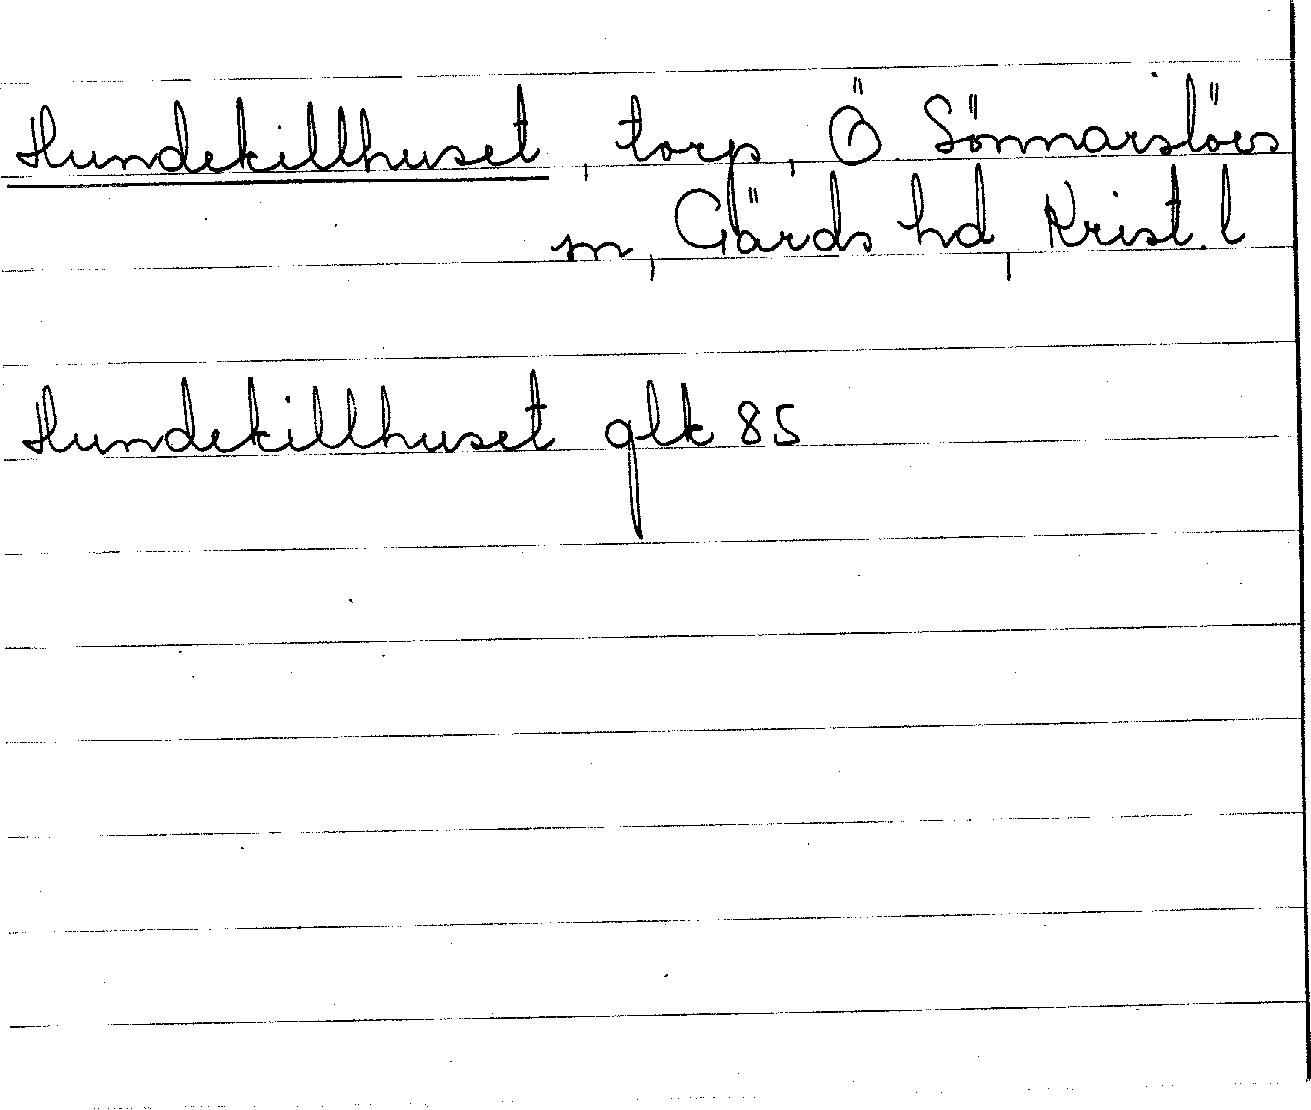 Hundekillhuset, torp, Ö. Sönnarslövs
sn, Gärds hd, Krist. l
Hundekillhuset glk 85